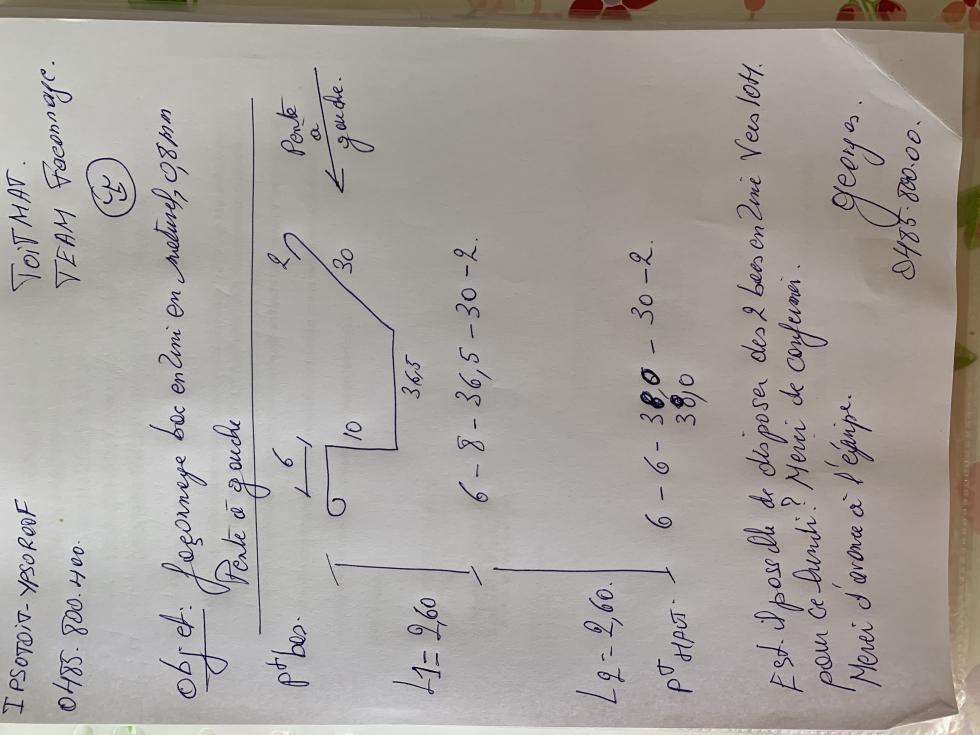 IPSOTOIT-YPSOROOF
0485.800.400.
TOITMAT.
TEAM Façonnage.
Objet: façonnage bac en Zinc en naturel, 0,8mm
Pente à gauche
pt bas.
6
10
36,5
30
2
Pente
à
gauche.
L1 = 2,60
6 - 8 - 36,5 - 30 - 2.
L2 = 2,60.
pT HAUT.
6 - 6 - 38,0 - 30 - 2.
38,0
Est-il possible de disposer des 2 bacs en Zinc vers 10H.
pour ce lundi? Merci de confirmer.
Merci d'avance à l'équipe.
Georges.
0485.800.00.